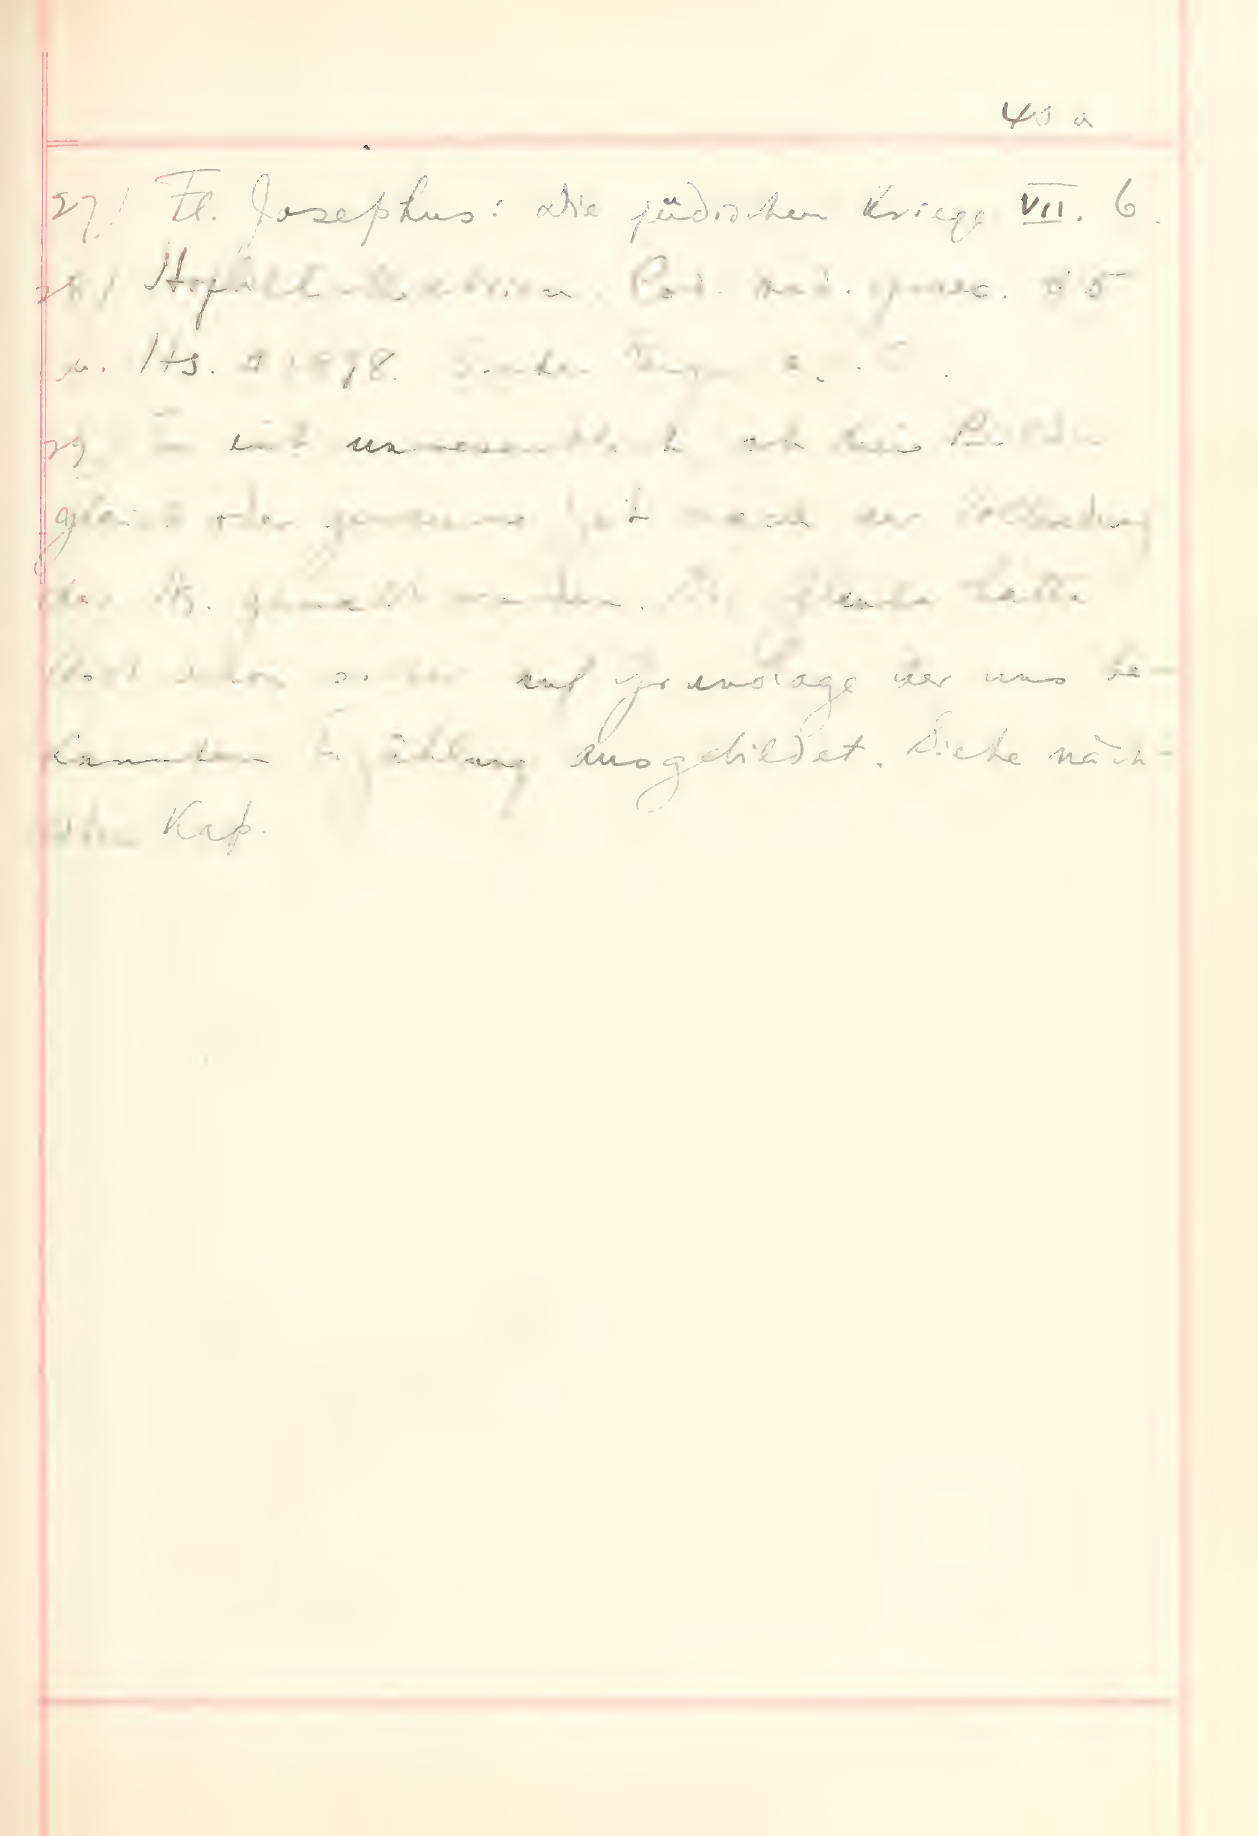 40 a
27/ Fl. Josephus: die jüdischen Kriege VII. 6.
28/ Cod. med. graec. 5
u. Hs.
29 Es ist unwesentlich, ob die Bilder
gleich oder geraume Zeit nach der Vollendung
der Hs. gemalt wurden. Der Glaube hatte
sich schon auf Grundlage der uns be-
kannten Erzählung ausgebildet. Siehe näch-
sten Kap.